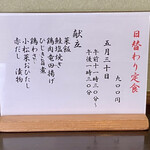 日替わり定食
九〇〇円
五月三十日
午前十一時三〇分～
午後一時三〇分
献立
菜飯
鮭塩焼き
鶏肉竜田揚げ
ひじき旨煮
鶏わさ
小松菜おひたし
赤だし
漬物